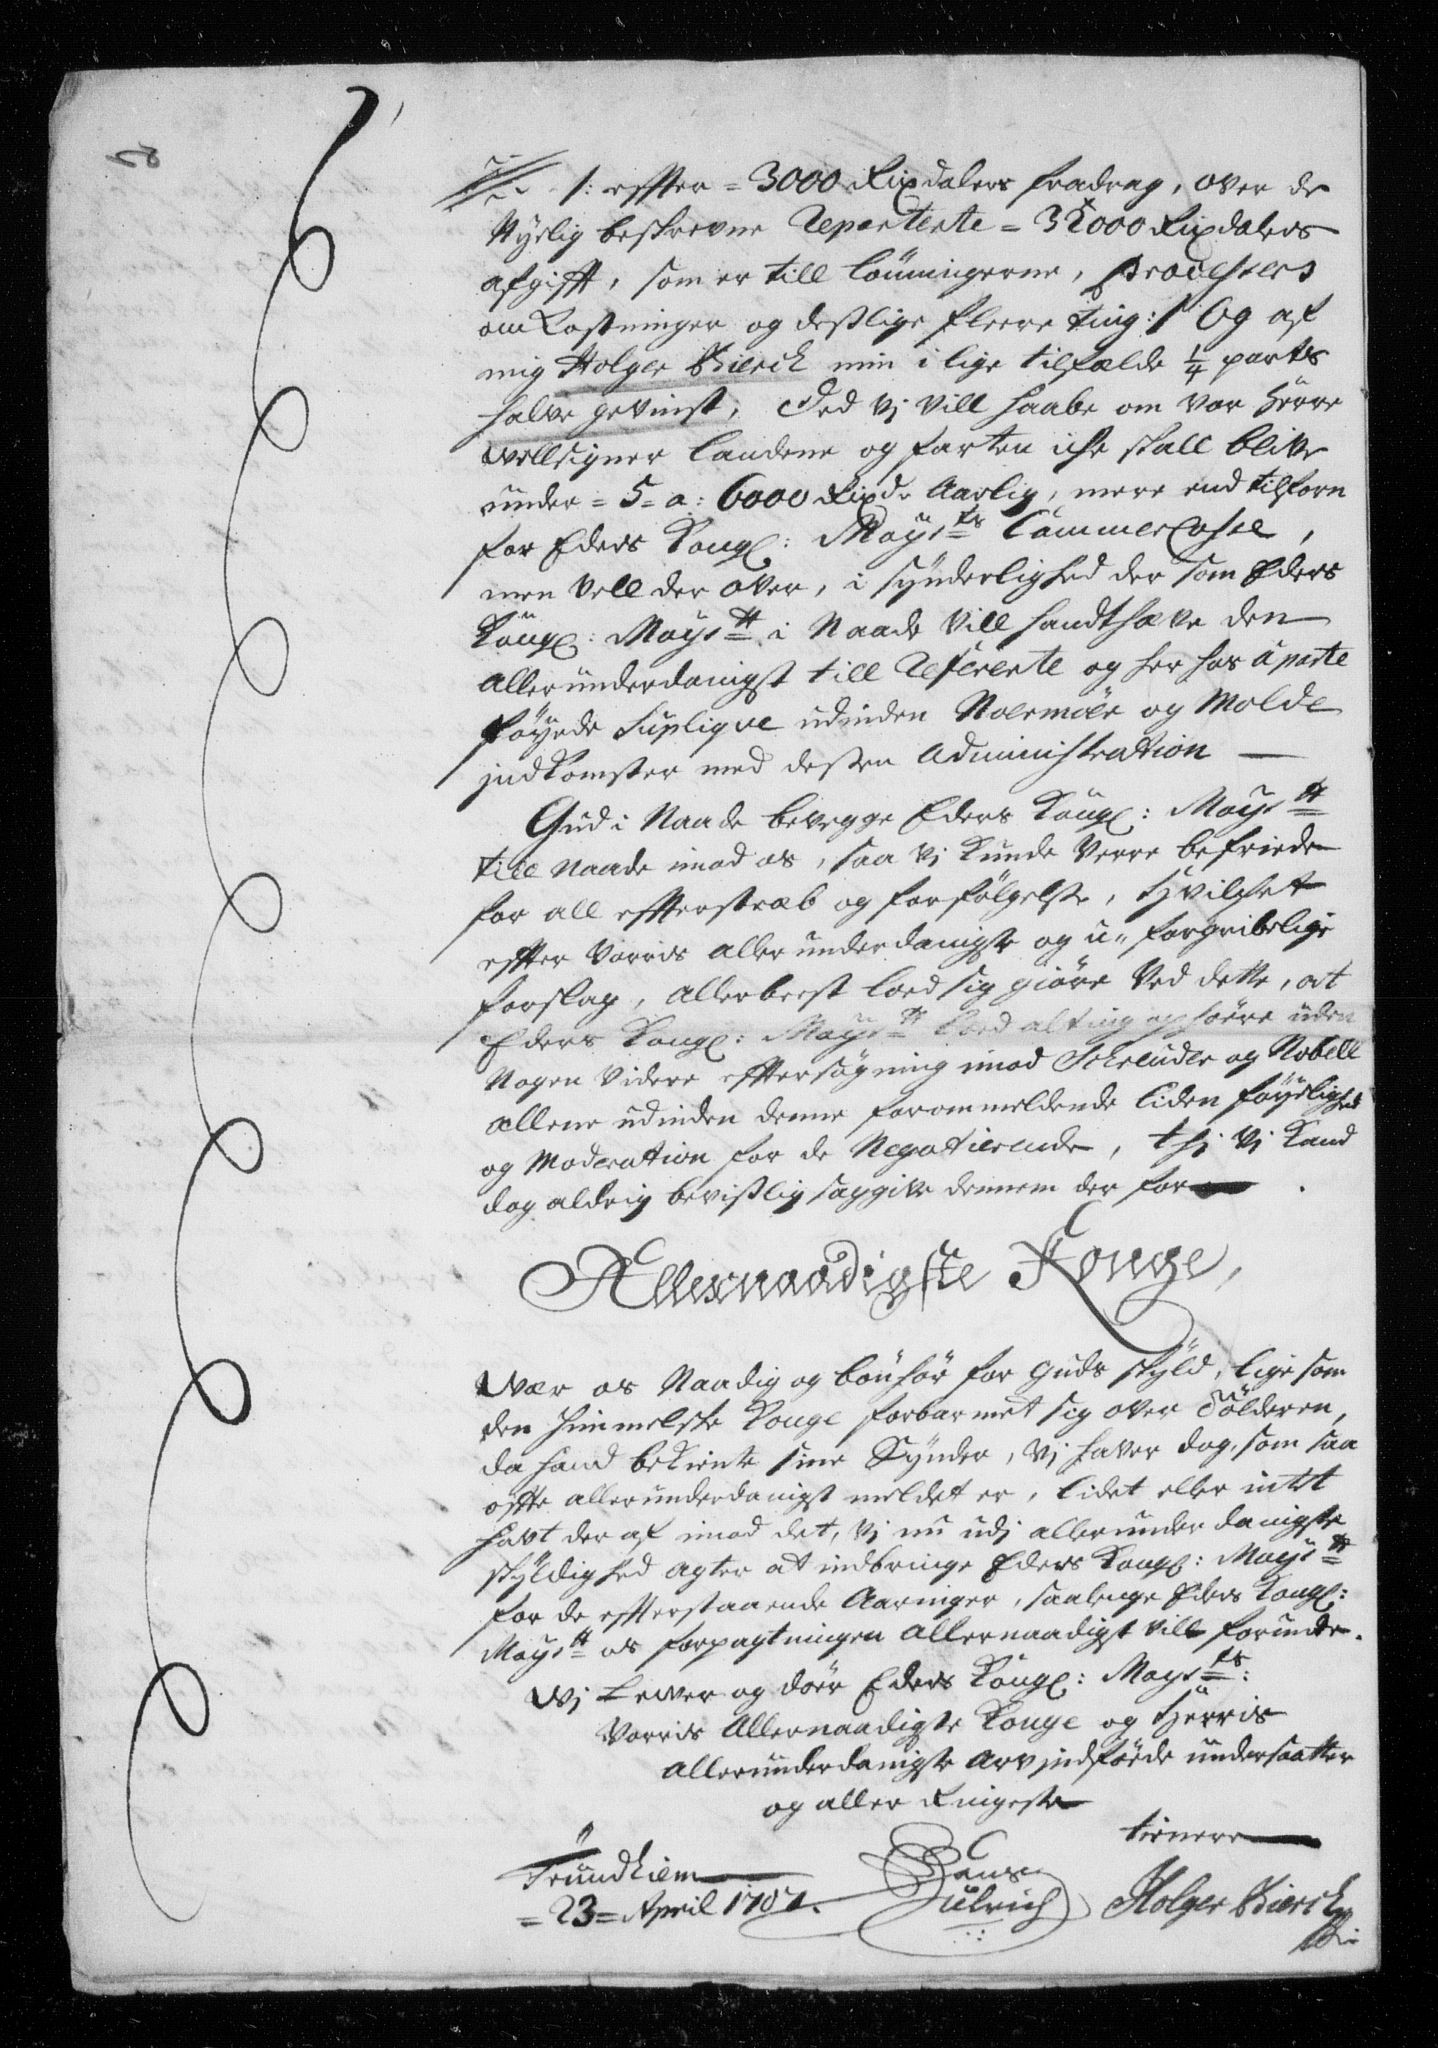 /: effter = 3000 Rixdalers fradrag, over de
Nyelig beskrevne Reparterte = 32000 Rixdalers
afgifft, som er till Lönningerne, Processers
omkostninger og deslige fleere ting :/ Og af
mig Holger Bierck min i lige tilfælde ¼ parts
halve gevinst, Ded vj vill haabe om vor Herre
wellsigner landene og farten icke skall blive
under = 5 = a: 6000 Rixdr Aarlig, mere end tilforn
for Eders Kongl: Mayts Cammer Casse,
men vell der over, i synderlighed der som Eders
Kongl: Maytt i Naade vill handthæve den
allerunderdanigst till Referente og her hos aparte
föyede Suplique udinden Noermöer og Molde
jndkomster med dessen Administration —
Gud i Naade bevegge Eders Kongl: Maytt
till Naade imod os, saa vj kunde verre befriede
for all effterstræb og forfölgelse, Hvilchet
effter vorris allerunderdanigste og u-forgribelige
forslag, allerbeest loed sig giöre ved dette, at
Eders Kongl: Maytt loed alting ophöre uden
Nogen videre efftersögning imod Schreuder og Nobell
allene udinden denne forommeldende liden föyelighed
og Moderation for de Negotierende, thj vj kand
dog aldrig bevislig saggive dennem der for
Allernaadigste Konge,
Wær os Naadig og bönhör for Guds skyld, lige som
den himmelske Konge forbarmet sig over Tölderen,
da hand bekiente sine Synder, vj haver dog, som saa
offte allerunderdanigst meldet er, lidet eller intet
havt der af imod det, vj nu udj allerunderdanigste
skyldighed agter at indbringe Eders Kongl: Maytt
for de effterstaaende Aaringer, saalenge Eders Kongl:
Maytt os forpagtningen allernaadigst vill forunde.
Wj Lewer og döer Eders Kongl: Mayts:
Vorris Allernaadigste Konge og Herris
allerunderdanigste arvjndföede undersaatter
og aller Ringeste
tienere
Trundhiem
= 23 = April 1707.
Hans Ulrich
Holger Bierck